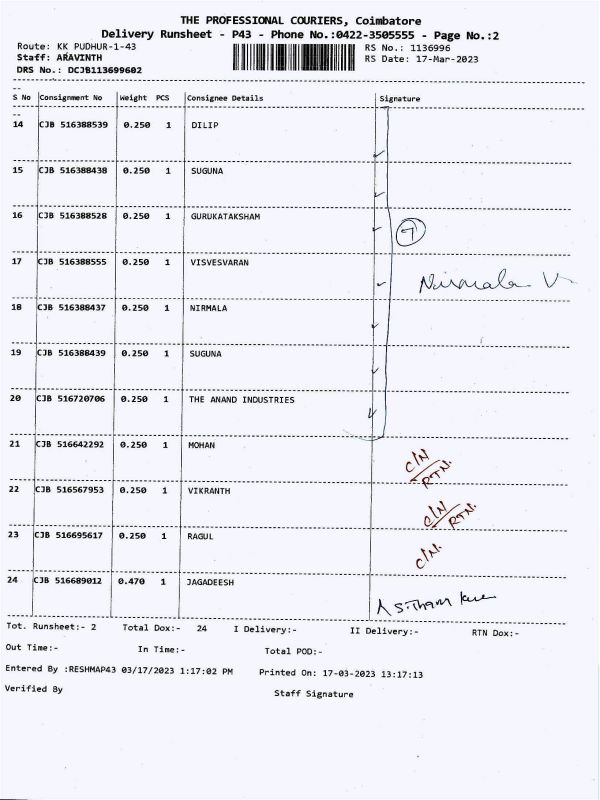 THE PROFESSIONAL COURIERS, Coimbatore
Delivery Runsheet - P43 - Phone No.:0422-3505555 - Page No.:2
Route: KK PUDHUR-1-43 RS No.: 1136996
Staff: ARAVINTH RS Date: 17-Mar-2023
DRS No.: DCJB113699602
S No Consignment No Weight PCS Consignee Details Signature
14 CJB 516388539 0.250 1 DILIP
15 CJB 516388438 0.250 1 SUGUNA
16 CJB 516388528 0.250 1 GURUKATAKSHAM 7
17 CJB 516388555 0.250 1 VISVESVARAN Nirmala V
18 CJB 516388437 0.250 1 NIRMALA
19 CJB 516388439 0.250 1 SUGUNA
20 CJB 516720706 0.250 1 THE ANAND INDUSTRIES
21 CJB 516642292 0.250 1 MOHAN C/N RTN.
22 CJB 516567953 0.250 1 VIKRANTH C/N RTN.
23 CJB 516695617 0.250 1 RAGUL C/N.
24 CJB 516689012 0.470 1 JAGADEESH
Tot. Runsheet:- 2 Total Dox:- 24 I Delivery:- II Delivery:- RTN Dox:-
Out Time:- In Time:- Total POD:-
Entered By :RESHMAP43 03/17/2023 1:17:02 PM Printed On: 17-03-2023 13:17:13
Verified By Staff Signature